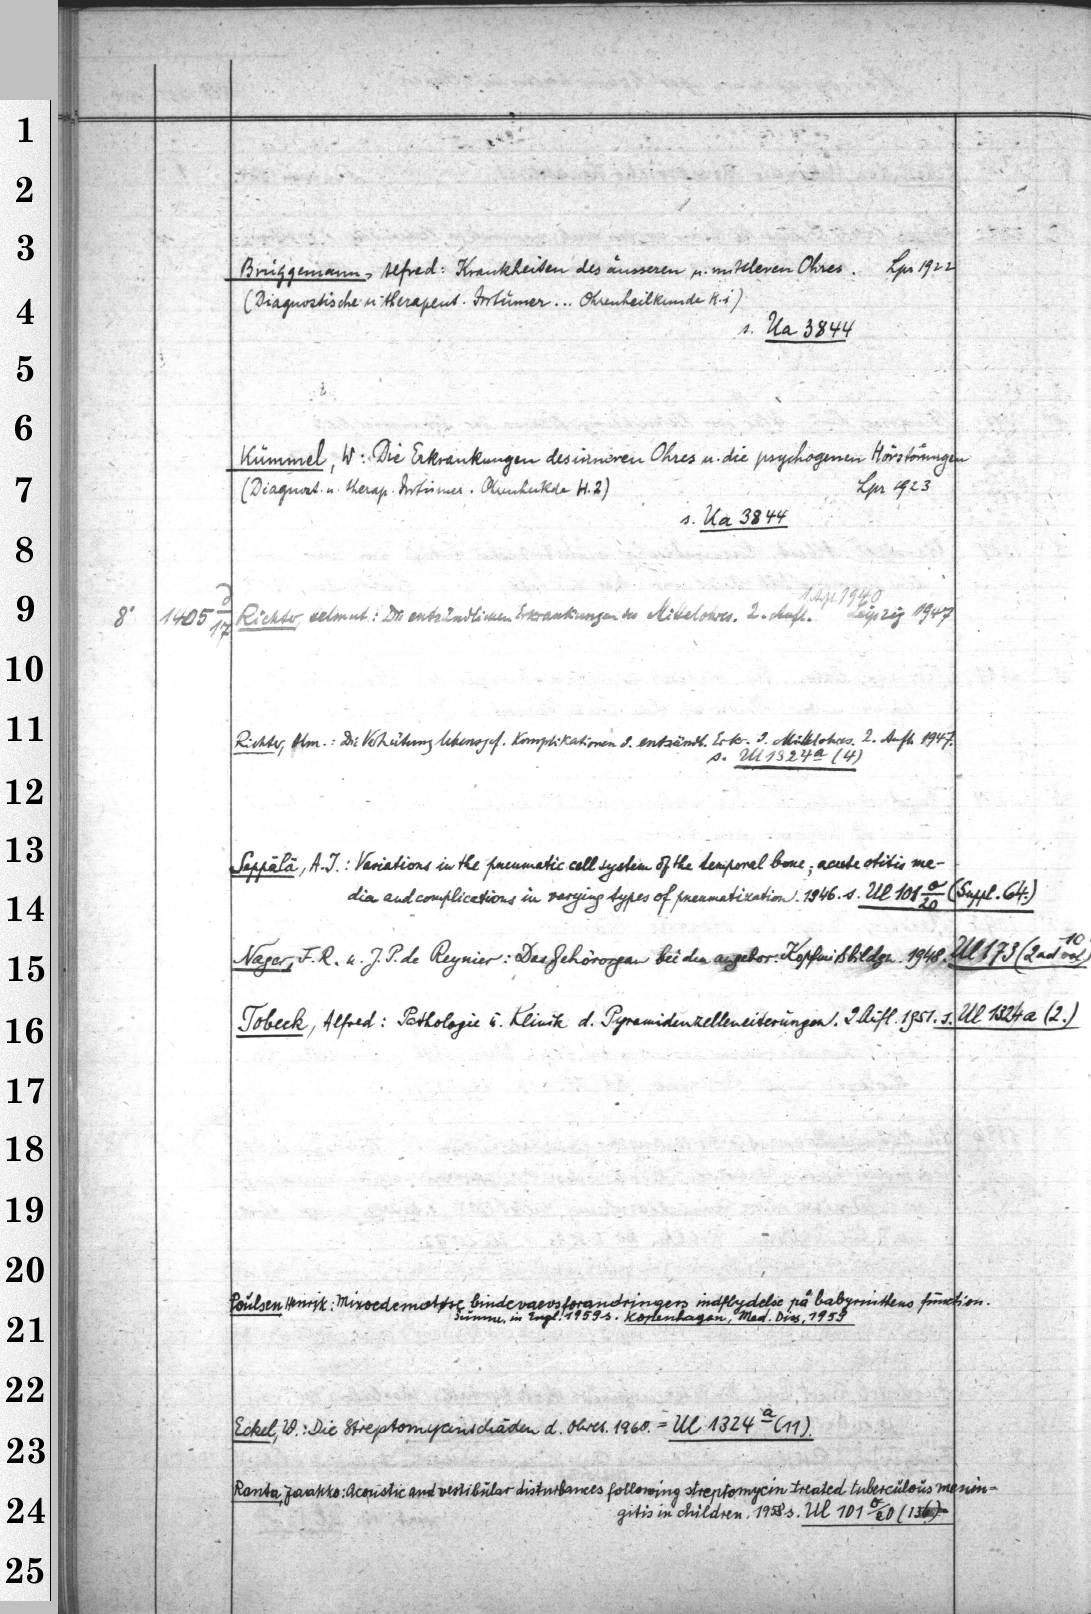 1
2
3
Brüggemann, Alfred: Krankheiten des äusseren u. mittleren Ohres. Lpz 1922
(Diagnostische u. therapeut. Irrtümer... Ohrenheilkunde H. 1)
4
s. Ua 3844
5
6
Kümmel, W: Die Erkrankungen des inneren Ohres u. die psychogenen Hörstörungen
7
(Diagnost. u. therap. Irrtümer. Ohrenheilkde H. 2) Lpz 1923
s. Ua 3844
8
9
1. Aufl. 1940
8° 1405 17 Richter, Helmut: Die entzündlichen Erkrankungen des Mittelohres. 2. Aufl. Leipzig 1947
10
11
Richter, Hlm.: Die Verhütung lebensgef. Komplikationen d. entzündl. Erkr. d. Mittelohres. 2. Aufl. 1947.
s. Ul 1324 a (4)
12
13
Seppälä, A.J.: Variations in the pneumatic cell system of the temporal bone; acute otitis me-
14
dia and complications in varying types of pneumatization. 1946. s. Ul 101 a/20 (Suppl. 64.)
15
Nager, F.R. u. J.P. de Reynier: Das Gehörorgan bei den angebor. Kopfmißbildgn. 1948. Ul 173 (2 ad vol 10)
16
Tobeck, Alfred: Pathologie u. Klinik d. Pyramidenzelleneiterungen. 2 Aufl. 1951. s. Ul 1324 a (2.)
17
18
19
20
Poulsen Henrik: Mixoedematøse bindevaevsforandringers indflydelse på babyrinthens function.
21
Summ. in Engl. 1959 s. Kopenhagen, Med. Diss, 1959
22
Eckel, W.: Die Streptomycinschäden d. Ohres. 1960. = Ul 1324 a (11).
23
Ranta, Jaakko: Acoustic and vestibular disturbances following streptomycin treated tuberculous menin-
24
gitis in children. 1958 s. Ul 101 a/20 (136)
25